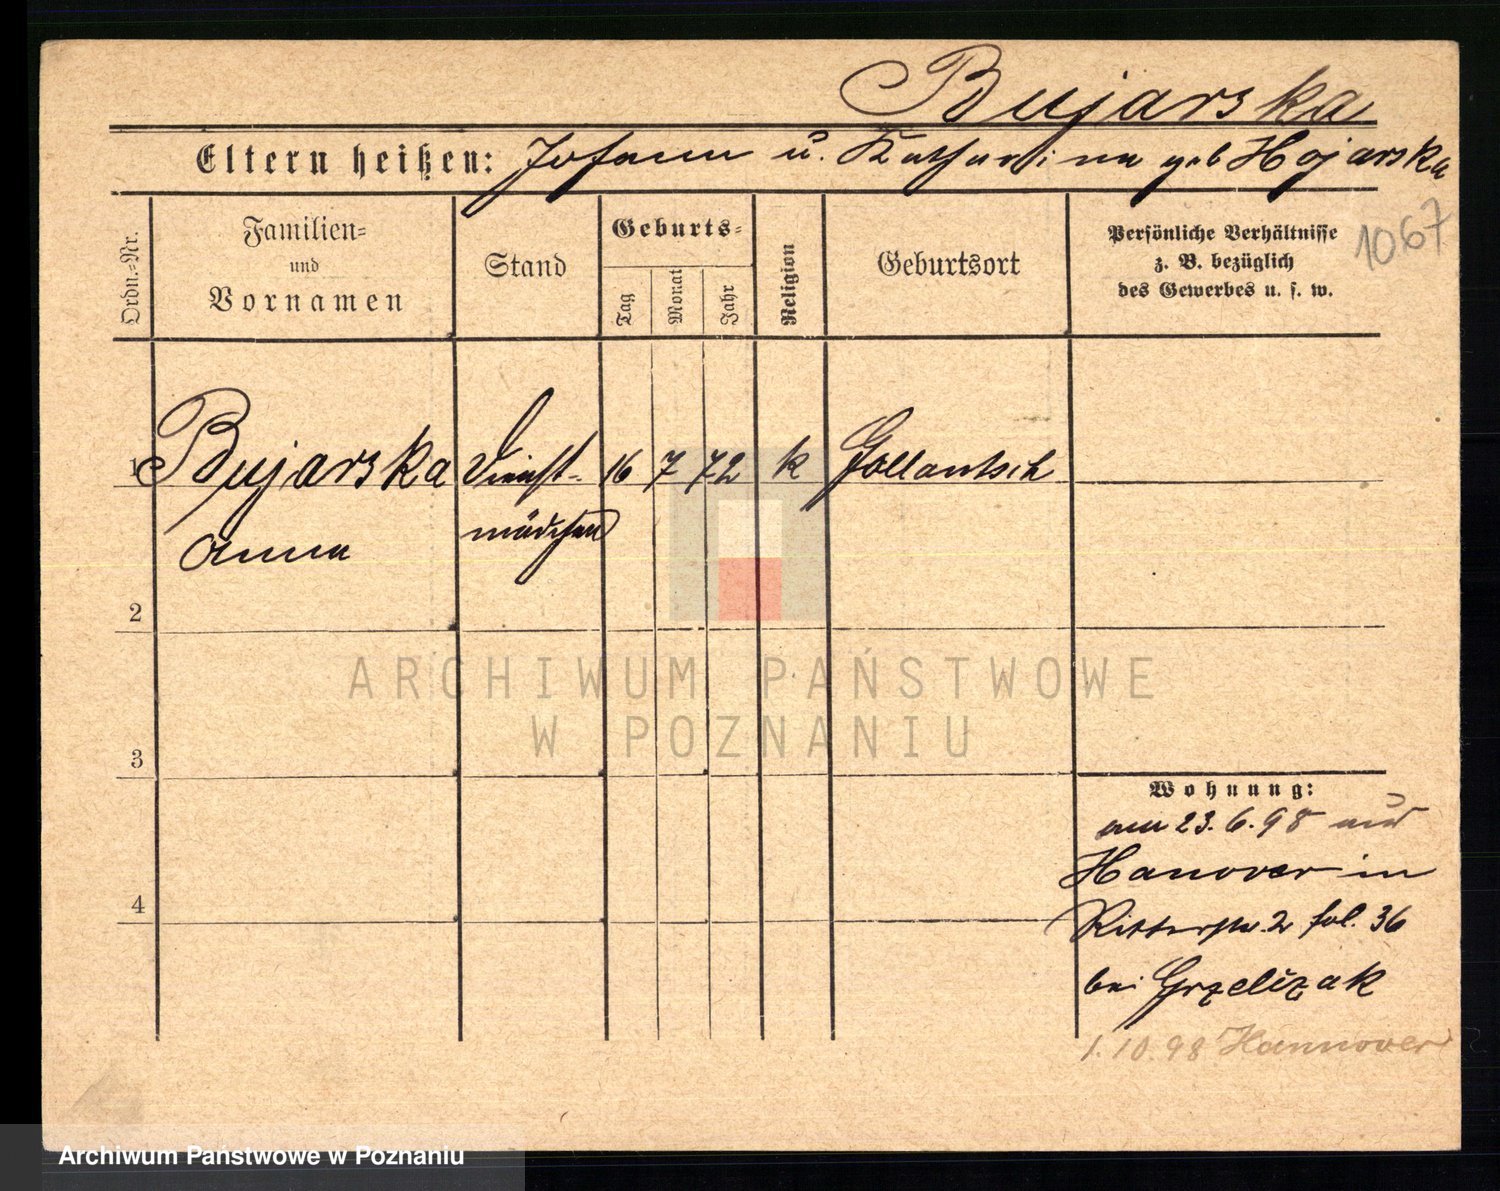 Bujarska
Eltern heißen: Johann u. Katharina geb Hojarska
1067
Ordn.-Nr.
Familien- und Vornamen
Stand
Geburts-
Tag
Monat
Jahr
Religion
Geburtsort
Persönliche Verhältnisse
z. B. bezüglich
des Gewerbes u. s. w.
1 Bujarska Dienst- 16 7 72 k Gollantsch
Anna mädchen
2
ARCHIWUM PAŃSTWOWE
W POZNANIU
3
Wohnung:
am 23.6.98 aus
Hanover in
4
Ritterstr. 2 fol. 36
bei Grzelizak
1.10.98 Hannover
Archiwum Państwowe w Poznaniu